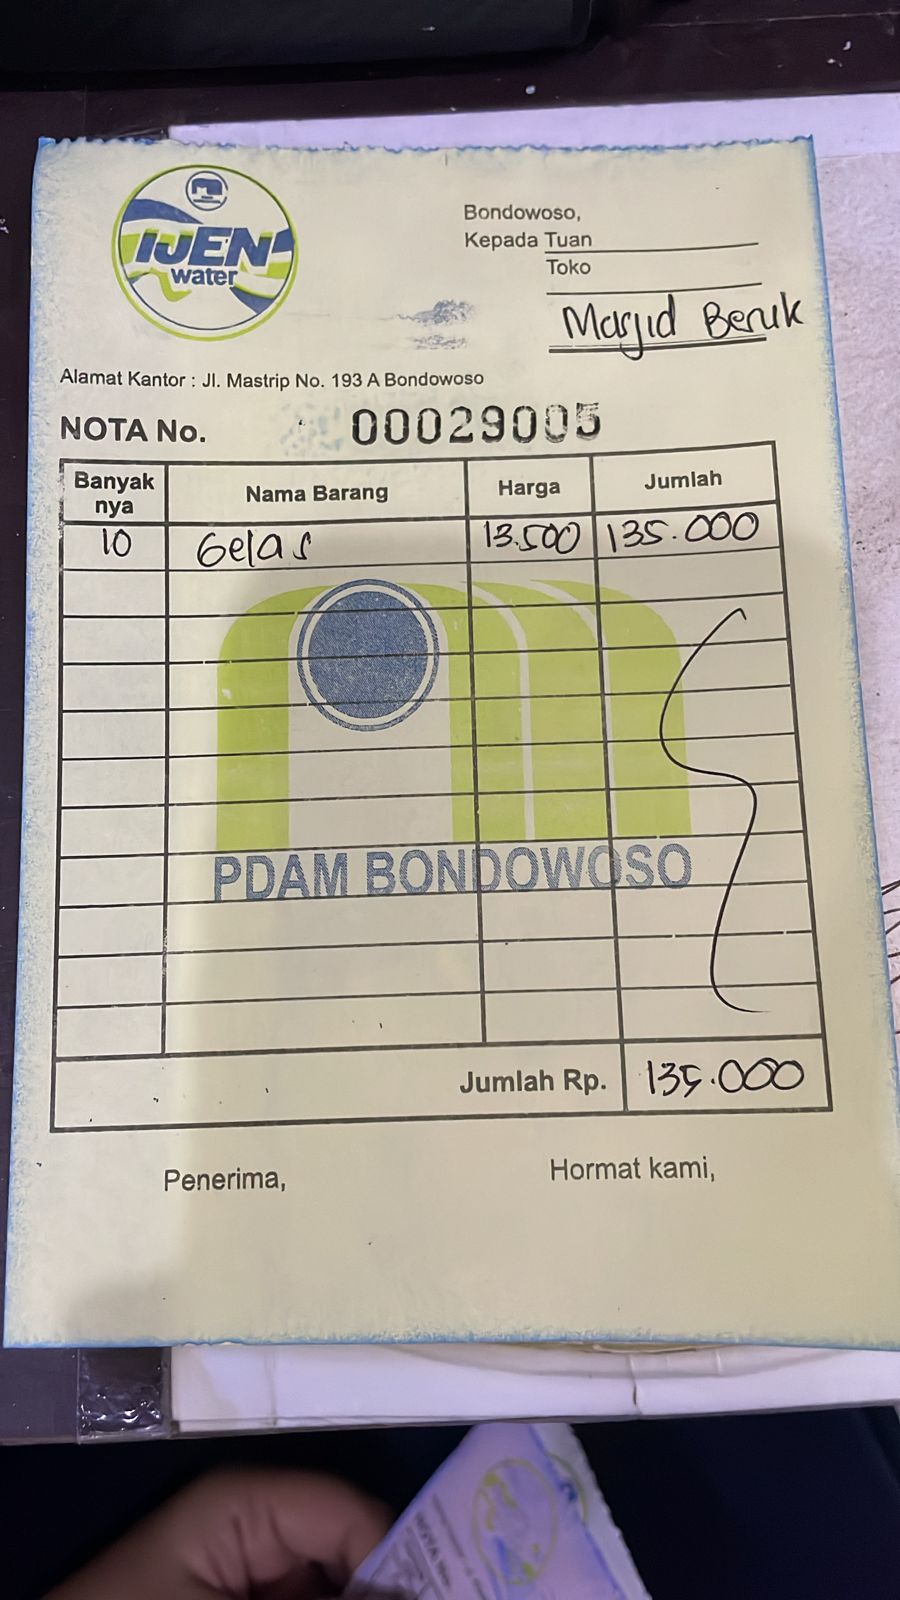 IJEN
water
Bondowoso,
Kepada Tuan
Toko
Masjid Beruk
Alamat Kantor : Jl. Mastrip No. 193 A Bondowoso
NOTA No. 00029005
Banyak nya Nama Barang Harga Jumlah
10 Gelas 13.500 135.000
PDAM BONDOWOSO
Jumlah Rp. 135.000
Penerima, Hormat kami,